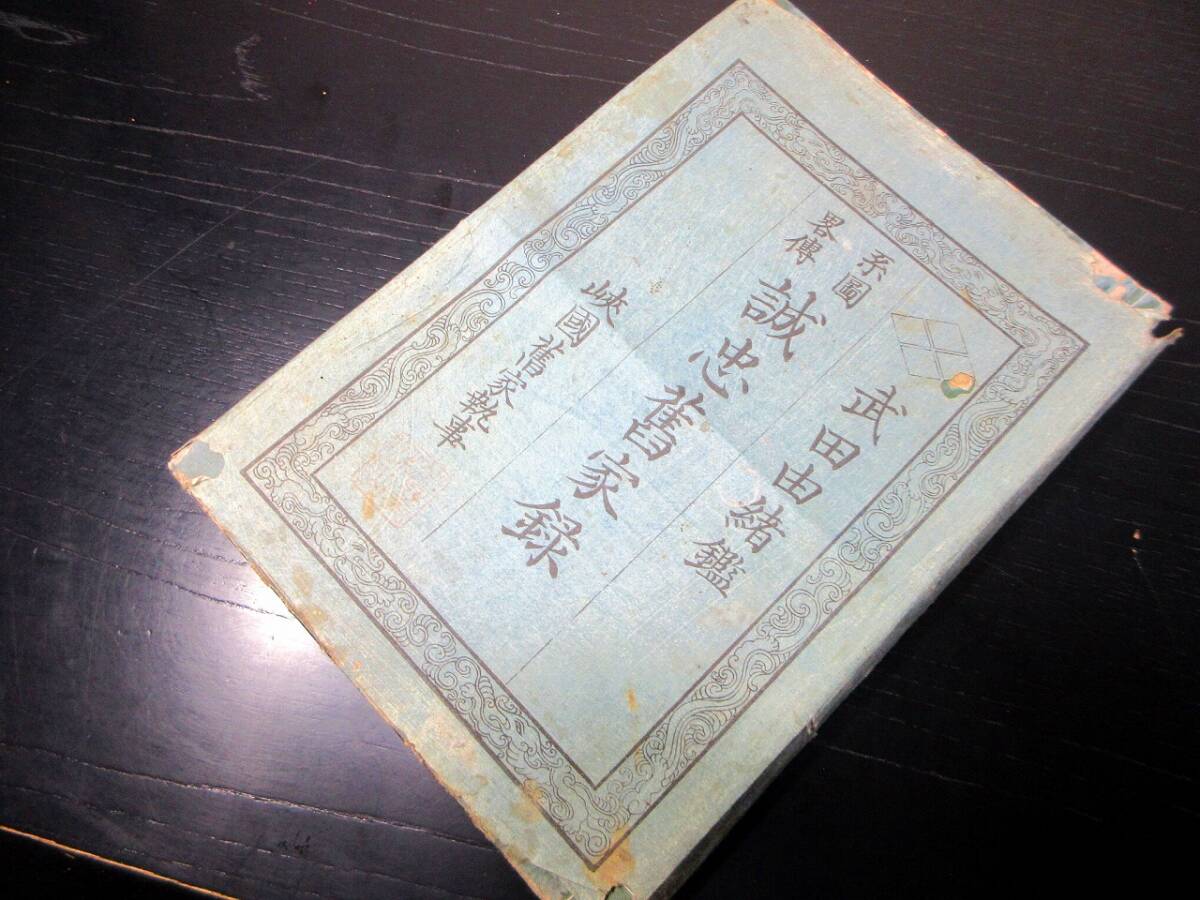 武田由緒鑑
系圖
畧傳
誠忠舊家録
峽國舊家執事